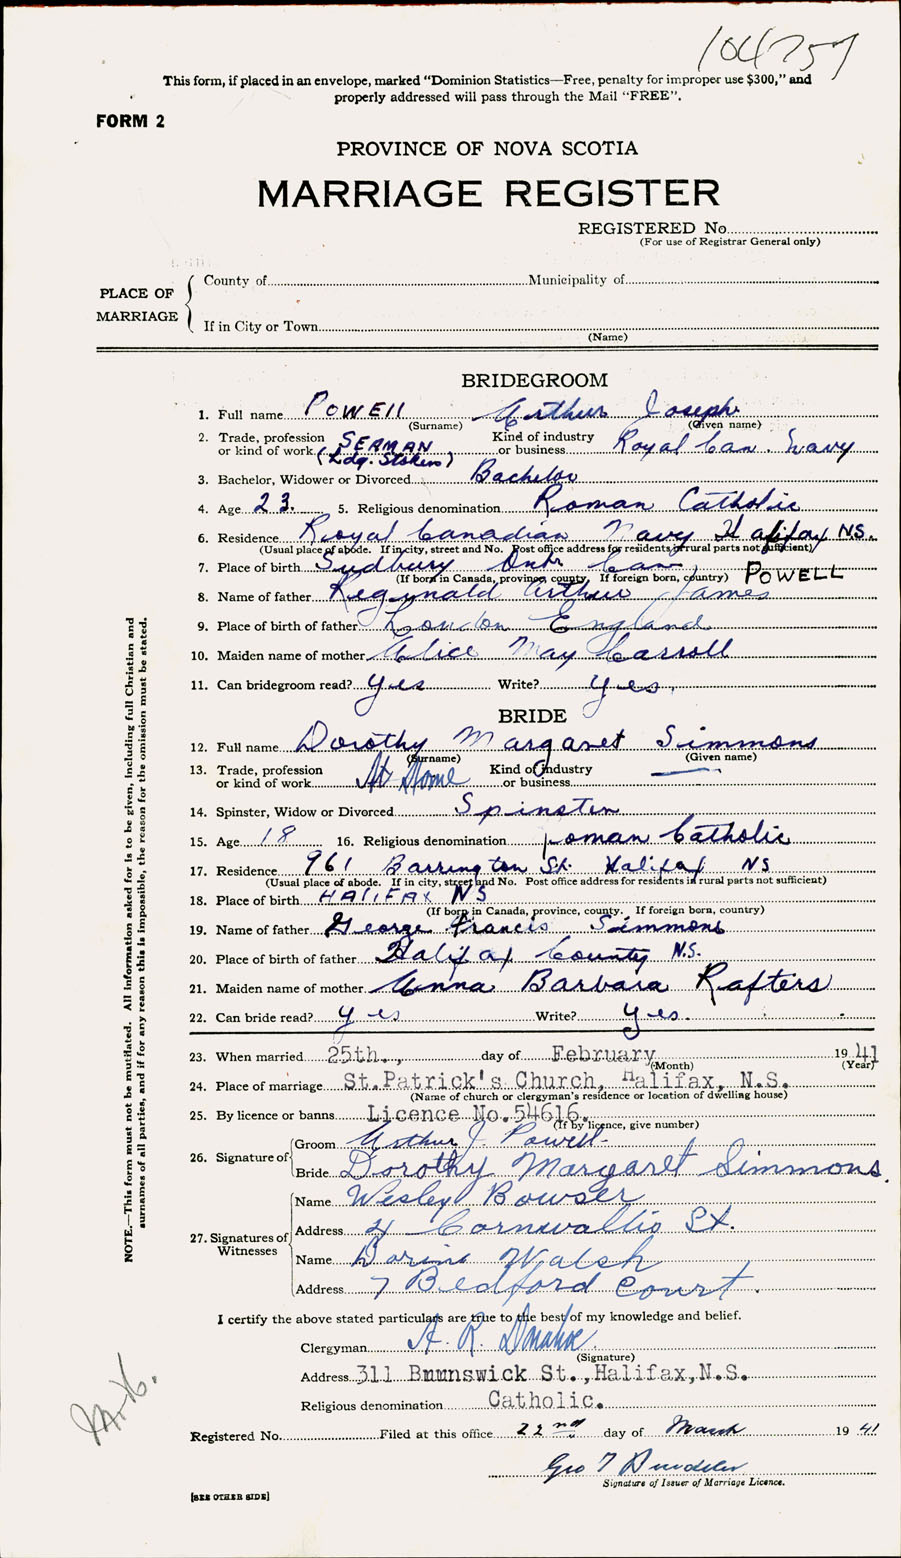 104757
This form, if placed in an envelope, marked "Dominion Statistics—Free, penalty for improper use $300," and
properly addressed will pass through the Mail "FREE".
FORM 2
PROVINCE OF NOVA SCOTIA
MARRIAGE REGISTER
REGISTERED No
(For use of Registrar General only)
PLACE OF MARRIAGE
County of Municipality of
If in City or Town
(Name)
BRIDEGROOM
1. Full name POWELL Arthur Joseph
(Surname) (Given name)
2. Trade, profession or kind of work SEAMAN (Ldg. Stoker) Kind of industry or business Royal Can. Navy
3. Bachelor, Widower or Divorced Bachelor
4. Age 23. 5. Religious denomination Roman Catholic
6. Residence Royal Canadian Navy Halifax N.S.
(Usual place of abode. If in city, street and No. Post office address for residents in rural parts not sufficient)
7. Place of birth Sudbury Ont. Can
(If born in Canada, province, county. If foreign born, country) POWELL
8. Name of father Reginald Arthur James
9. Place of birth of father London England
10. Maiden name of mother Alice May Carroll
11. Can bridegroom read? yes Write? yes.
BRIDE
12. Full name Dorothy Margaret Simmons
(Surname) (Given name)
13. Trade, profession or kind of work At Home Kind of industry or business —
14. Spinster, Widow or Divorced Spinster
15. Age 18 16. Religious denomination Roman Catholic
17. Residence 961 Barrington St. Halifax NS
(Usual place of abode. If in city, street and No. Post office address for residents in rural parts not sufficient)
18. Place of birth HALIFAX NS
(If born in Canada, province, county. If foreign born, country)
19. Name of father George Francis Simmons
20. Place of birth of father Halifax County N.S.
21. Maiden name of mother Anna Barbara Rafters
22. Can bride read? yes Write? yes.
23. When married 25th., day of February 1941
(Month) (Year)
24. Place of marriage St.Patrick's Church, Halifax, N.S.
(Name of church or clergyman's residence or location of dwelling house)
25. By licence or banns Licence No.54616.
(If by licence, give number)
26. Signature of Groom Arthur J Powell
Bride Dorothy Margaret Simmons.
27. Signatures of Witnesses
Name Wesley Bowser
Address 4 Cornwallis St.
Name Walsh
Address 7 Bedford Court.
I certify the above stated particulars are true to the best of my knowledge and belief.
Clergyman A. R. Donahoe
(Signature)
Address 311 Brunswick St.,Halifax,N.S.
Religious denomination Catholic.
Registered No. Filed at this office 22nd day of March 1941
Geo
Signature of Issuer of Marriage Licence.
[SEE OTHER SIDE]
NOTE.—This form must not be mutilated. All information asked for is to be given, including full Christian and
surnames of all parties, and if for any reason this is impossible, the reason for the omission must be stated.